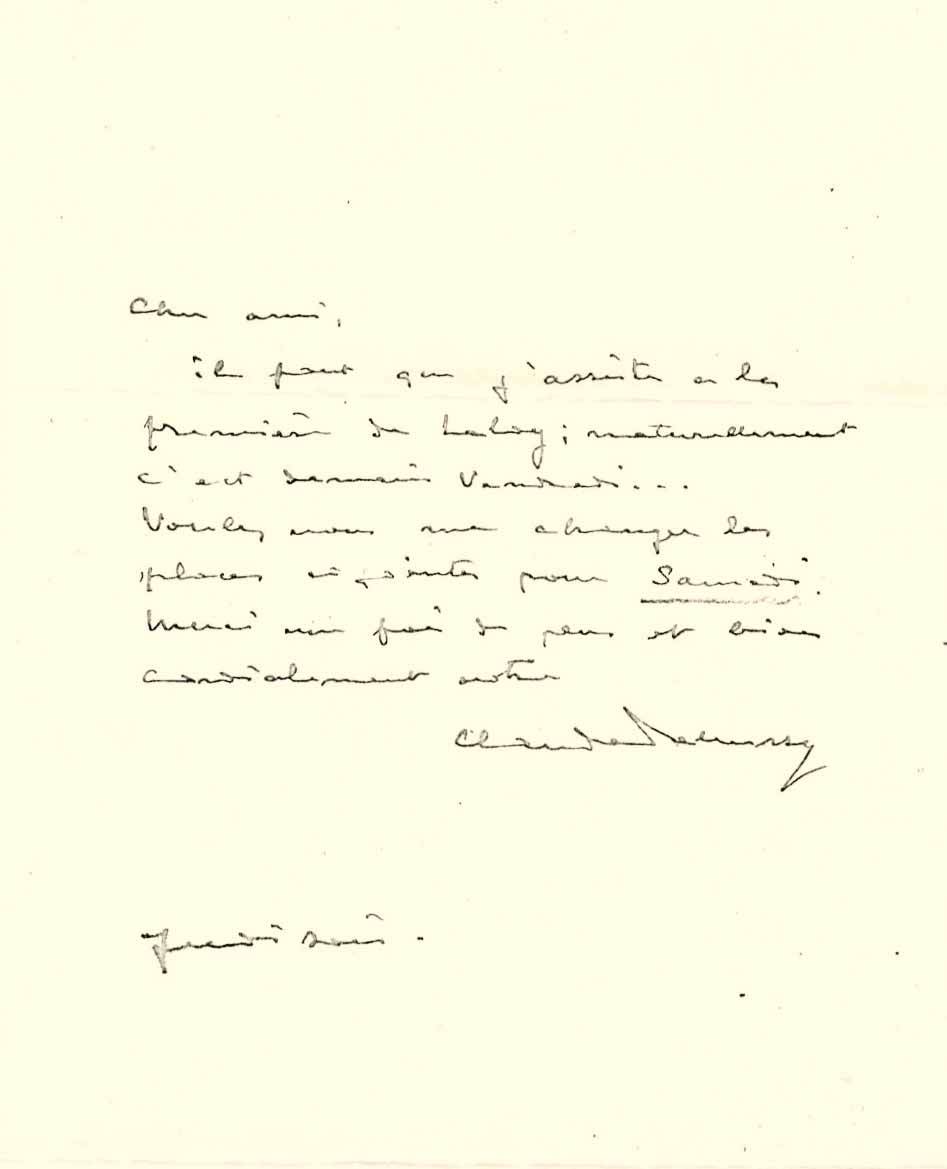 Cher ami,
il faut que j'assiste à la
première de Laloy ; naturellement
c'est demain Vendredi...
Voulez vous me changer les
places ci jointes pour Samedi.
Merci une fois de plus et bien
cordialement votre
Claude Debussy
Jeudi soir.